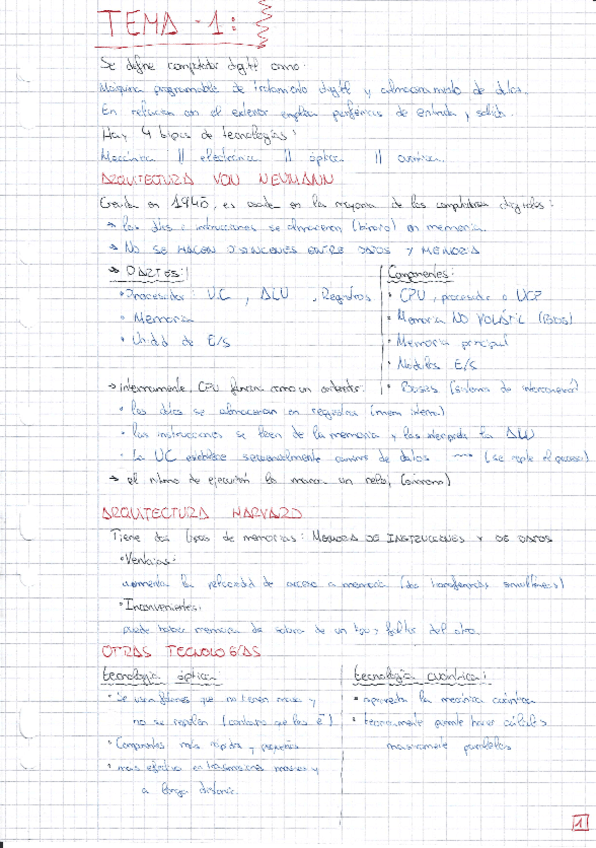 TEMA - 1:
Se define computador digital como:
Máquina programable de tratamiento digital y almacenamiento de datos.
En relación con el exterior emplean periféricos de entrada y salida.
Hay 4 tipos de tecnologías:
Mecánica || electrónica || óptica || cuántica.
ARQUITECTURA VON NEUMANN
Creada en 1940, es usada en la mayoría de los computadores digitales:
→ los datos e instrucciones se almacenan (binario) en memoria.
→ NO SE HACEN DISTINCIONES ENTRE DATOS Y MEMORIA
→ PARTES:
• Procesador: U.C, ALU, Registros
• Memoria
• Unidad de E/S
Componentes:
• CPU, procesador o UCP
• Memoria NO VOLÁTIL (BIOS)
• Memoria principal
• Módulos E/S
• Buses (sistema de interconexión)
→ internamente, CPU funciona como un ordenador:
• los datos se almacenan en registros (mem. interna)
• las instrucciones se leen de la memoria y las interpreta la ALU
• la UC establece secuencialmente camino de datos (se repite el proceso)
→ el ritmo de ejecución la marca un reloj (síncrono)
ARQUITECTURA HARVARD
Tiene dos tipos de memorias: MEMORIA DE INSTRUCCIONES Y DE DATOS
• Ventajas:
aumenta la velocidad de acceso a memoria (dos transferencias simultáneas)
• Inconvenientes:
puede haber memoria de sobra de un tipo y faltar del otro.
OTRAS TECNOLOGÍAS
tecnología óptica
• Se usan fotones que no tienen masa y
no se repelen (contrario que los e⁻)
• Componentes más rápidos y pequeños
• más efectiva en transmisiones masivas y
a larga distancia.
tecnología cuántica:
• aprovecha la mecánica cuántica
• teóricamente puede hacer cálculos
masivamente paralelos
1